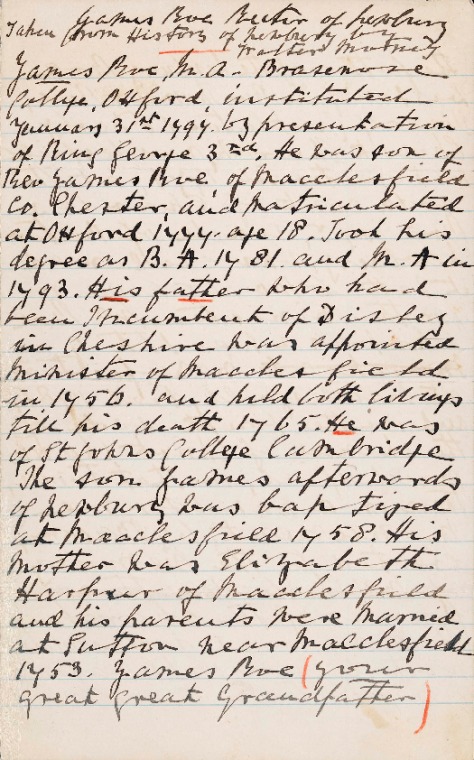 James Roe Rector of Newbury
Taken from History of Newbury by
Walter Money
James Roe, M.A. Brasenose
College, Oxford, instituted
January 31st 1797. by presentation
of King George 3rd. He was son of
Rev James Roe, of Macclesfield
Co. Chester, and Matriculated
at Oxford 1777. age 18. Took his
degree as B.A. 1781 and M.A in
1793. His father who had
been Incumbent of Disley
in Cheshire was appointed
Minister of Macclesfield
in 1756. and held both livings
till his death 1765. He was
of St Johns College Cambridge
The son James afterwards
of Newbury was baptized
at Macclesfield 1758. His
Mother was Elizabeth
Harpur of Macclesfield
and his parents were Married
at Sutton near Macclesfield
1753. James Roe (your
great great Grandfather)